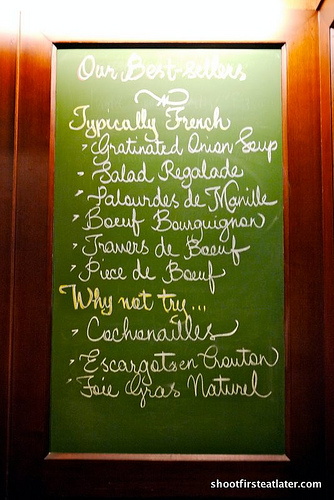 Our Best-sellers
Typically French
- Gratinated Onion Soup
- Salad Regalade
- Palourdes de Manille
- Boeuf Bourguignon
- Travers de Boeuf
- Piece de Boeuf
Why not try...
- Cochonailles
- Escargots en Crouton
- Foie Gras Naturel
shootfirsteatlater.com